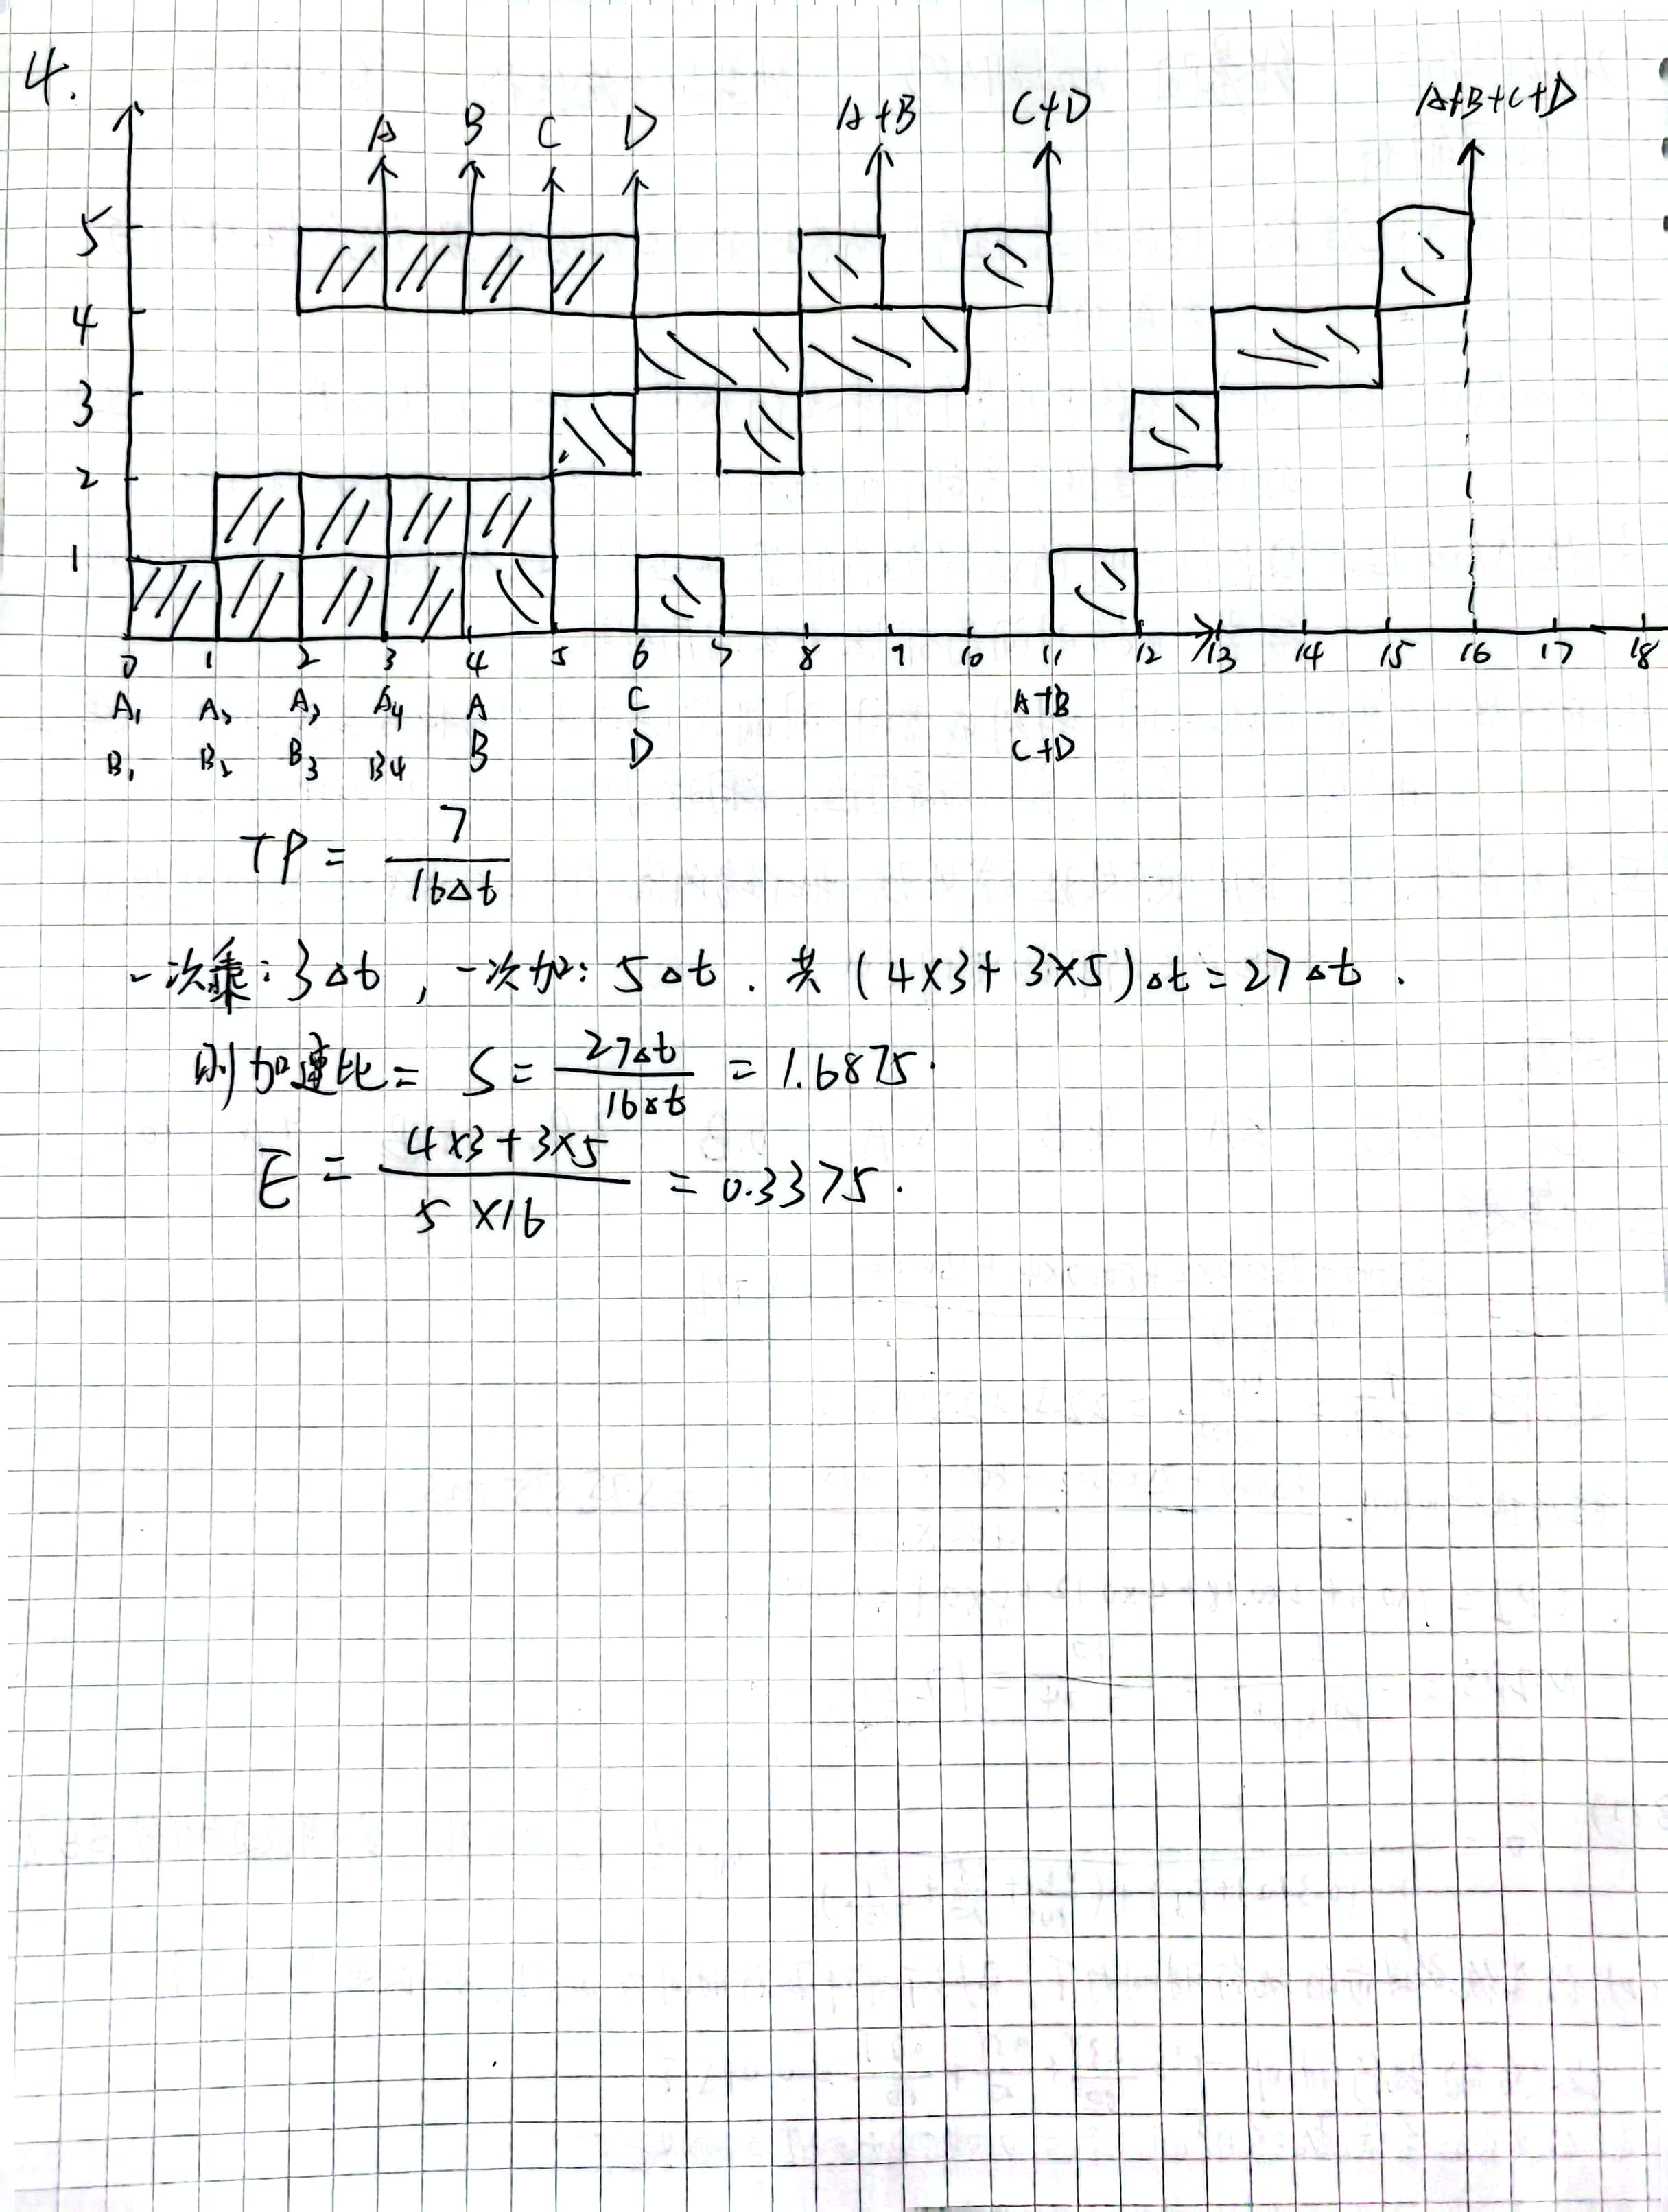 4.
A B C D A+B C+D A+B+C+D
5
4
3
2
1
0 1 2 3 4 5 6 7 8 9 10 11 12 13 14 15 16 17 18
A₁ A₂ A₃ A₄ A C A+B
B₁ B₂ B₃ B4 B D C+D
TP = 7 / 16Δt
一次乘: 3Δt , 一次加: 5Δt . 共 (4×3+3×5)Δt = 27Δt .
则加速比 = S = 27Δt / 16Δt = 1.6875.
E = 4×3+3×5 / 5×16 = 0.3375.